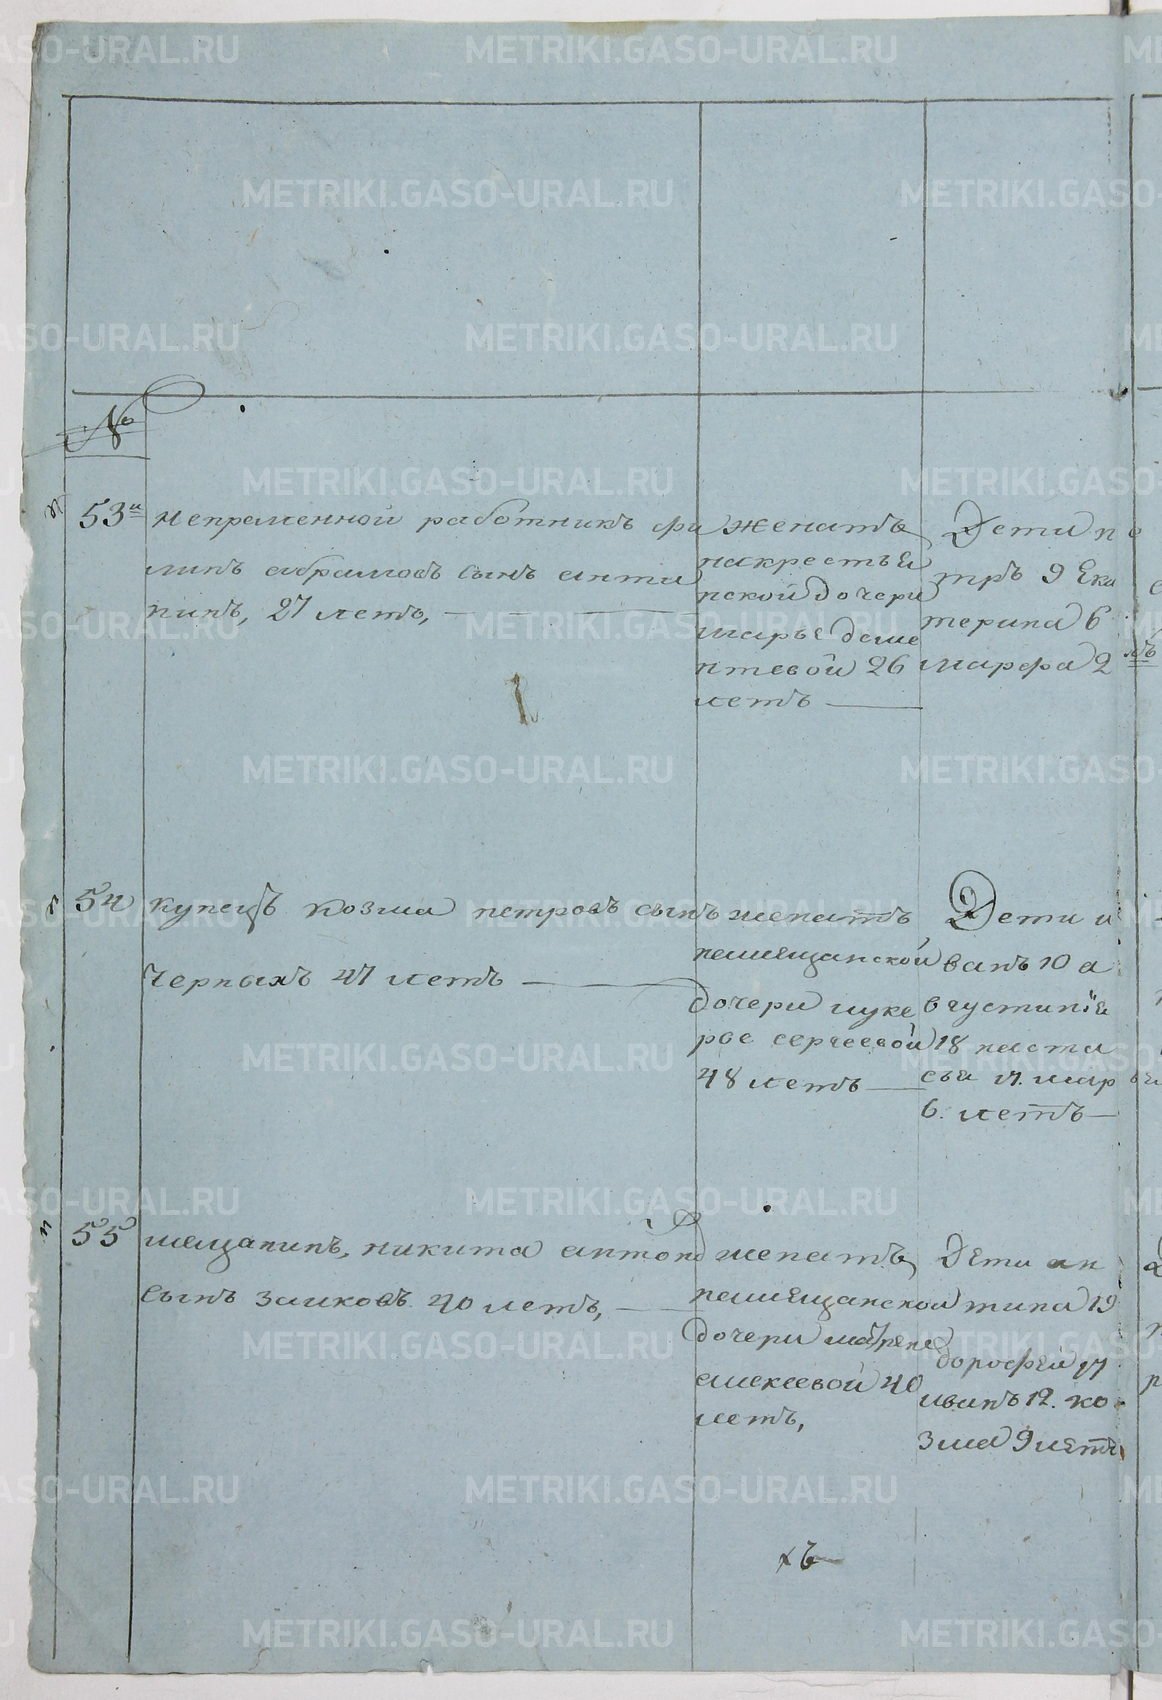 №
53й непременной работникъ фи
липъ абрамовъ сынъ анти
пинъ, 27 летъ,
женатъ
накрестья
нской дочери
марье деме
нтевой 26
летъ
Дети пе
тръ 9 Ека
терина 6
марфа 2
54 купецъ козма петровъ сынъ
Черныхъ 47 летъ
женатъ
немещанской
дочери луке
рье сергеевой
48 летъ
Дети и
ванъ 10 а
вгустинiя
18 наста
сья 17. марья
6. летъ
55 мещанинъ, никита антоно
сынъ заиковъ 40 летъ,
женатъ
немещанской
дочери матрене
алексеевой 40
летъ,
Дети ан
типа 19
дорофей 17
иванъ 12. ко
зма 9 летъ
METRIKI.GASO-URAL.RU